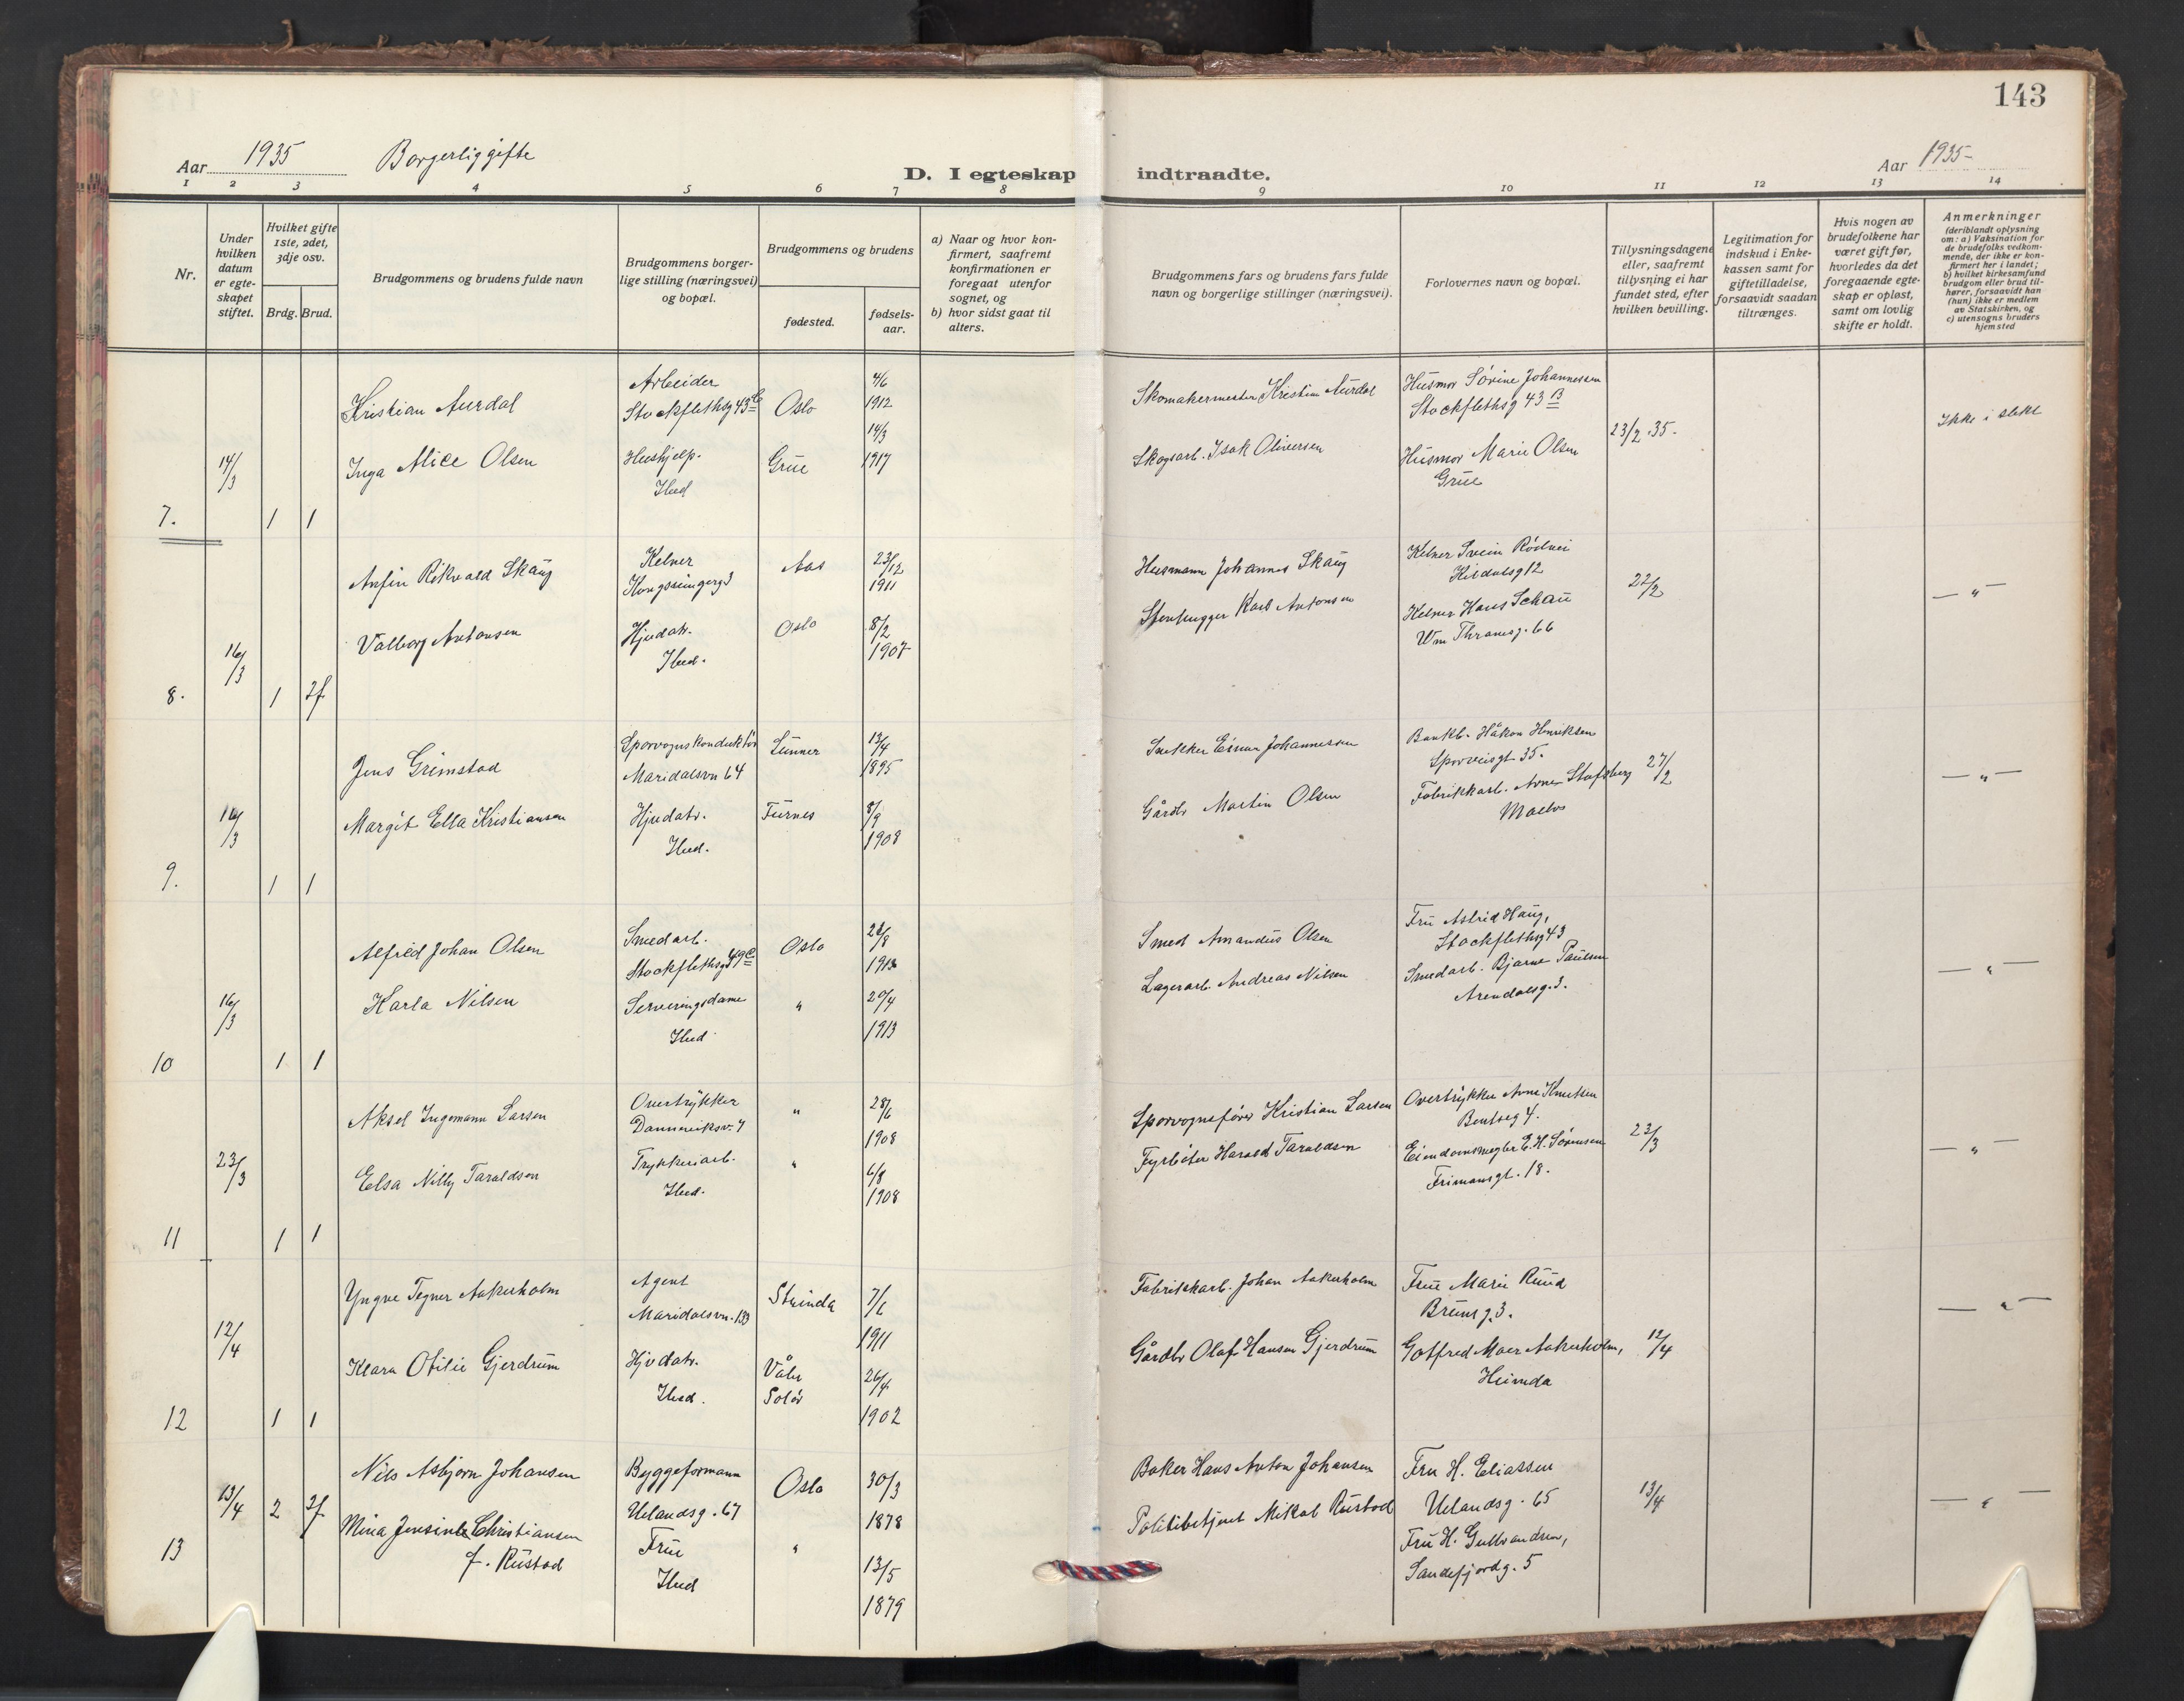 143
Aar 1935 Borgerlig gifte
D. I egteskap indtraadte.
Aar 1935-
1 2 3 4 5 6 7 8 9 10 11 12 13 14
Nr.
Under
hvilken
datum
er egte-
skapet
stiftet.
Hvilket gifte
1ste, 2det,
3dje osv.
Brdg. Brud.
Brudgommens og brudens fulde navn
Brudgommens borger-
lige stilling (næringsvei)
og bopæl.
Brudgommens og brudens
fødested.
fødsels-
aar.
a) Naar og hvor kon-
firmert, saafremt
konfirmationen er
foregaat utenfor
sognet, og
b) hvor sidst gaat til
alters.
Brudgommens fars og brudens fars fulde
navn og borgerlige stillinger (næringsvei).
Forlovernes navn og bopæl.
Tillysningsdagene
eller, saafremt
tillysning ei har
fundet sted, efter
hvilken bevilling.
Legitimation for
indskud i Enke-
kassen samt for
giftetilladelse,
forsaavidt saadan
tiltrænges.
Hvis nogen av
brudefolkene har
været gift før,
hvorledes da det
foregaaende egte-
skap er opløst,
samt om lovlig
skifte er holdt.
Anmerkninger
(deriblandt oplysning
om: a) Vaksination for
de brudefolks vedkom-
mende, der ikke er kon-
firmert her i landet;
b) hvilket kirkesamfund
brudgom eller brud til-
hører, forsaavidt han
(hun) ikke er medlem
av Statskirken, og
c) utensogns bruders
hjemsted
7.
14/3
1 1
Kristian Aurdal
Inga Alice Olsen
Arbeider
Stockflethsg 43 C
Hushjelp.
Ibid
Oslo
Grue
4/6
1912
14/3
1917
Skomakermester Kristian Aurdal
Skogsarb. Isak Oliversen
Husmor Sörine Johannessen
Stockflethsg 43 B
Husmor Marie Olsen
Grue
23/2 .35.
Ikke i slekt
8.
16/3
1 2f
Anfin Rikvald Skaug
Valborg Antonsen
Kelner
Kongsvingerg 3
Hjudatr.
Ibid.
Aas
Oslo
23/12
1911
8/2
1907
Husmann Johannes Skaug
Stenhugger Karl Antonsen
Kelner Svein Rödnei
Kildalsg 12
Kelner Hans Schau
Wm Thranesg. 66
22/2
— " —
9.
16/3
1 1
Jens Grimstad
Margit Ella Kristiansen
Sporvognskonduktör
Maridalsvn 64
Hjudatr.
Ibid.
Lunner
Furnes
13/4
1895
8/9
1908
Snekker Einar Johannessen
Gårdbr Martin Olsen
Bankb. Håkon Henriksen
Sporveisgt 35.
Fabrikkarb. Arne Stafsberg
Maelvo
27/2
— " —
10
16/3
1 1
Alfred Johan Olsen
Karla Nilsen
Smedarb.
Stockflethsg 49 C
Serveringsdame
Ibid
Oslo
"
1913
20/4
1913
Smed Amandus Olsen
Lagerarb. Andreas Nilsen
Fru Astrid Haug,
Stockflethsg 43
Smedarb. Bjarne Paulsen
Arendalsg. 3.
— " —
11
23/3
1 1
Aksel Ingemann Larsen
Elsa Nilly Taraldsen
Overtrykker
Danneviksv. 7
Trykkeriarb.
Ibid.
"
"
28/6
1908
6/8
1908
Sporvognsförer Kristian Larsen
Fyrböter Harald Taraldsen
Overtrykker Arne Knutsen
Bentseg 4.
Eiendomsmegler E. H. Sörensen
Frimannsgt. 18.
23/3
— " —
12
12/4
1 1
Yngve Tegner Aakerholm
Klara Otilie Gjerdrum
Agent
Maridalsvn. 133
Hjudatr.
Ibid.
Strinda
Våler
Solör
7/6
1911
26/4
1902
Fabrikkarb. Johan Aakerholm
Gårdbr Olaf Hansen Gjerdrum
Frue Marie Ruud
Brunsg. 3.
Gotfred Moer Aakerholm,
Heimda
12/4
— " —
13
13/4
2 2f
Nils Asbjørn Johansen
Mina Jensine Christiansen
f. Rustad
Byggeformann
Uelandsg. 67
Frue
Ibid
Oslo
"
30/3
1878
13/5
1879
Baker Hans Anton Johansen
Politibetjent Mikal Rustad
Fru H. Eliassen
Uelandsg. 65
Fru H. Gulbrandsen,
Sandefjordg. 5
13/4
— " —